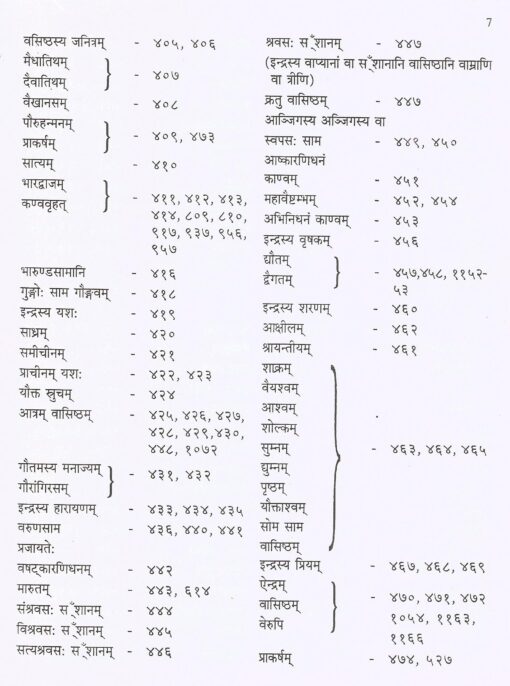 7
वसिष्ठस्य जनित्रम् - ४०५, ४०६
मैधातिथम्
दैवातिथम् - ४०७
वैखानसम् - ४०८
पौरुहन्मनम्
प्राकर्षम् - ४०९, ४७३
सात्यम् - ४१०
भारद्वाजम्
कण्वबृहत् - ४११, ४१२, ४१३,
४१४, ८०९, ८१०,
९१७, ९३७, ९५६,
९५७
भारुण्डसामानि - ४१६
गुङ्गोः साम गौङ्गवम् - ४१८
इन्द्रस्य यशः - ४१९
साध्रम् - ४२०
समीचीनम् - ४२१
प्राचीनम् यशः - ४२२, ४२३
यौक्त स्रुचम् - ४२४
आत्रम् वासिष्ठम् - ४२५, ४२६, ४२७,
४२८, ४२९,४३०,
४४८, १०७२
गौतमस्य मनाज्यम्
गौरांगिरसम् - ४३१, ४३२
इन्द्रस्य हारायणम् - ४३३, ४३४, ४३५
वरुणसाम - ४३६, ४४०, ४४१
प्रजायतेः
वषट्कारणिधनम् - ४४२
मारुतम् - ४४३, ६१४
संश्रवसः सँशानम् - ४४४
विश्रवसः सँशानम् - ४४५
सत्यश्रवसः सँशानम् - ४४६
श्रवसः सँशानम् - ४४७
(इन्द्रस्य वाप्यानां वा सँशानानि वासिष्ठानि वाम्राणि
वा त्रीणि)
क्रतु वासिष्ठम् - ४४७
आञ्जिगस्य अञ्जिगस्य वा
स्वपसः साम - ४४९, ४५०
आष्कारणिधनं
काण्वम् - ४५१
महावैष्टम्भम् - ४५२, ४५४
अभिनिधनं काण्वम् - ४५३
इन्द्रस्य वृषकम् - ४५६
द्यौतम्
द्वैगतम् - ४५७,४५८, ११५२-
५३
इन्द्रस्य शरणम् - ४६०
आक्षीलम् - ४६२
श्रायन्तीयम् - ४६१
शाक्रम्
वैयश्वम्
आश्वम्
शोल्कम्
सुम्नम् - ४६३, ४६४, ४६५
द्युम्नम्
पृष्ठम्
यौक्ताश्वम्
सोम साम
वासिष्ठम्
इन्द्रस्य प्रियम् - ४६७, ४६८, ४६९
ऐन्द्रम्
वासिष्ठम् - ४७०, ४७१, ४७२
वेरुपि १०५४, ११६३,
११६६
प्राकर्षम् - ४७४, ५२७